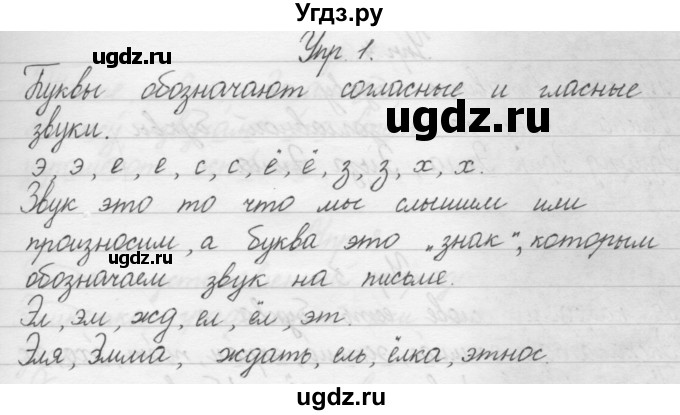 Угдз.ру
ugdz.ru
Упр 1.
Буквы обозначают согласные и гласные
ugdz.ru
звуки.
э, э, е, е, с, с, ё, ё, з, з, х, х.
Звук это то что мы слышим или
произносим, а буква это „знак“, которым
ugdz.ru
обозначаем звук на письме.
Эл, эм, жд, ел, ёл, эт.
Эля, Элма, ждать, ель, ёлка, этнос.
ugdz.ru
ugdz.ru